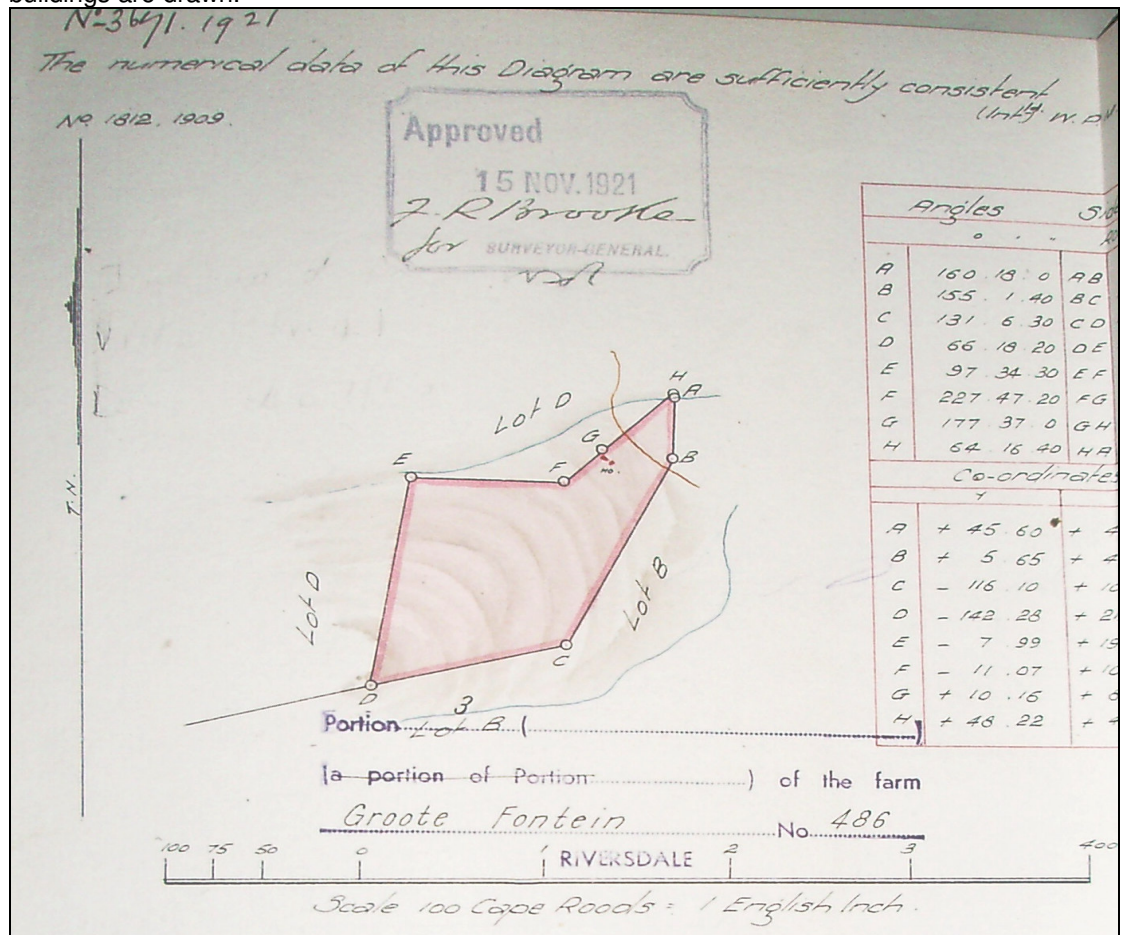 buildings are drawn.
No 3641. 1921
The numerical data of this Diagram are sufficiently consistent
(Intd) W.
No 1812. 1909.
Approved
15 NOV. 1921
J. R Brooke
for SURVEYOR-GENERAL.
Angles
° ' "
A 160 . 18 . 0 AB
B 155 . 1 . 40 BC
C 131 . 6 . 30 CD
D 66 . 18 . 20 DE
E 97 . 34 . 30 EF
F 227 . 47 . 20 FG
G 177 . 37 . 0 GH
H 64 . 16 . 40 HA
Co-ordinates
Y
A + 45 . 60 +
B + 5 . 65 +
C - 116 . 10 +
D - 142 . 28 +
E - 7 . 99 +
F - 11 . 07 +
G + 10 . 16 +
H + 48 . 22 +
T.N.
H
A
Lot D
G
Ho.
B
E
F
Lot D
Lot B
C
D
3
Portion Lot B (
)
(a portion of Portion ) of the farm
Groote Fontein No. 486
100 75 50 0 1 RIVERSDALE 2 3 400
Scale 100 Cape Roods = 1 English Inch.